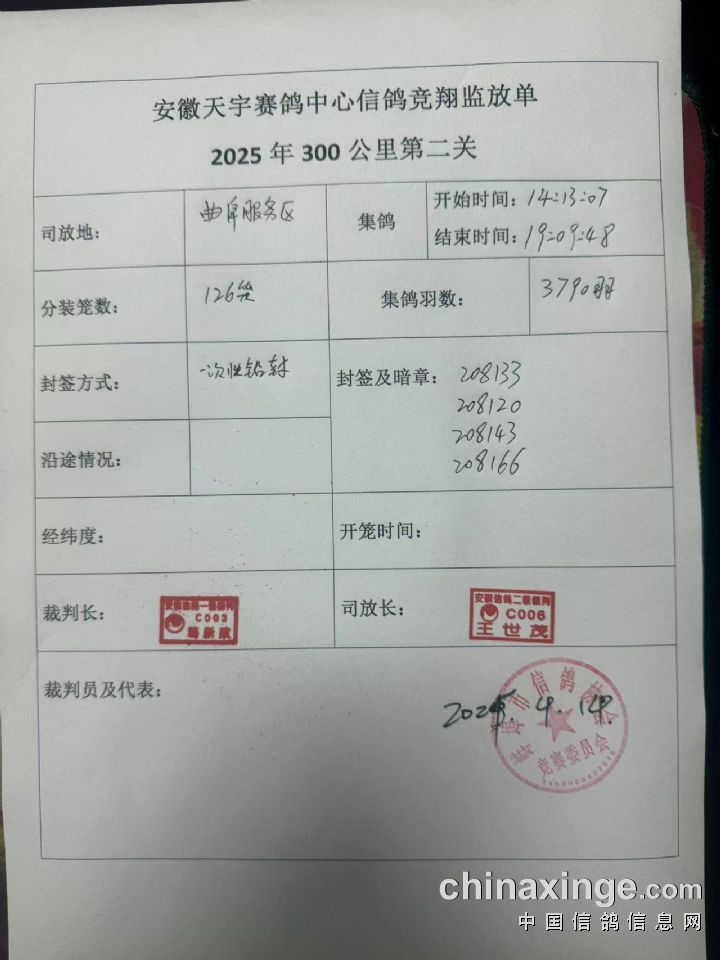 安徽天宇赛鸽中心信鸽竞翔监放单
2025 年 300 公里第二关
司放地：
曲阜服务区
集鸽
开始时间：14:13:07
结束时间：19:09:48
分装笼数：
126笼
集鸽羽数：
3790羽
封签方式：
一次性铅封
封签及暗章：
208133
208120
208143
208166
沿途情况：
经纬度：
开笼时间：
裁判长：
安徽信鸽一级裁判
C003
司放长：
安徽信鸽二级裁判
C006
王世茂
裁判员及代表：
2025.4.14.
市信鸽协会
竞赛委员会
chinaxinge.com
中国信鸽信息网